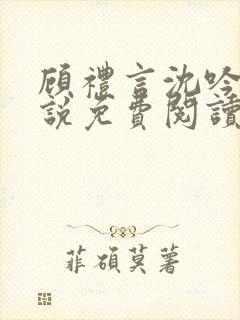 顾禮言沈吟
說免費閱讀
菲碩莫著